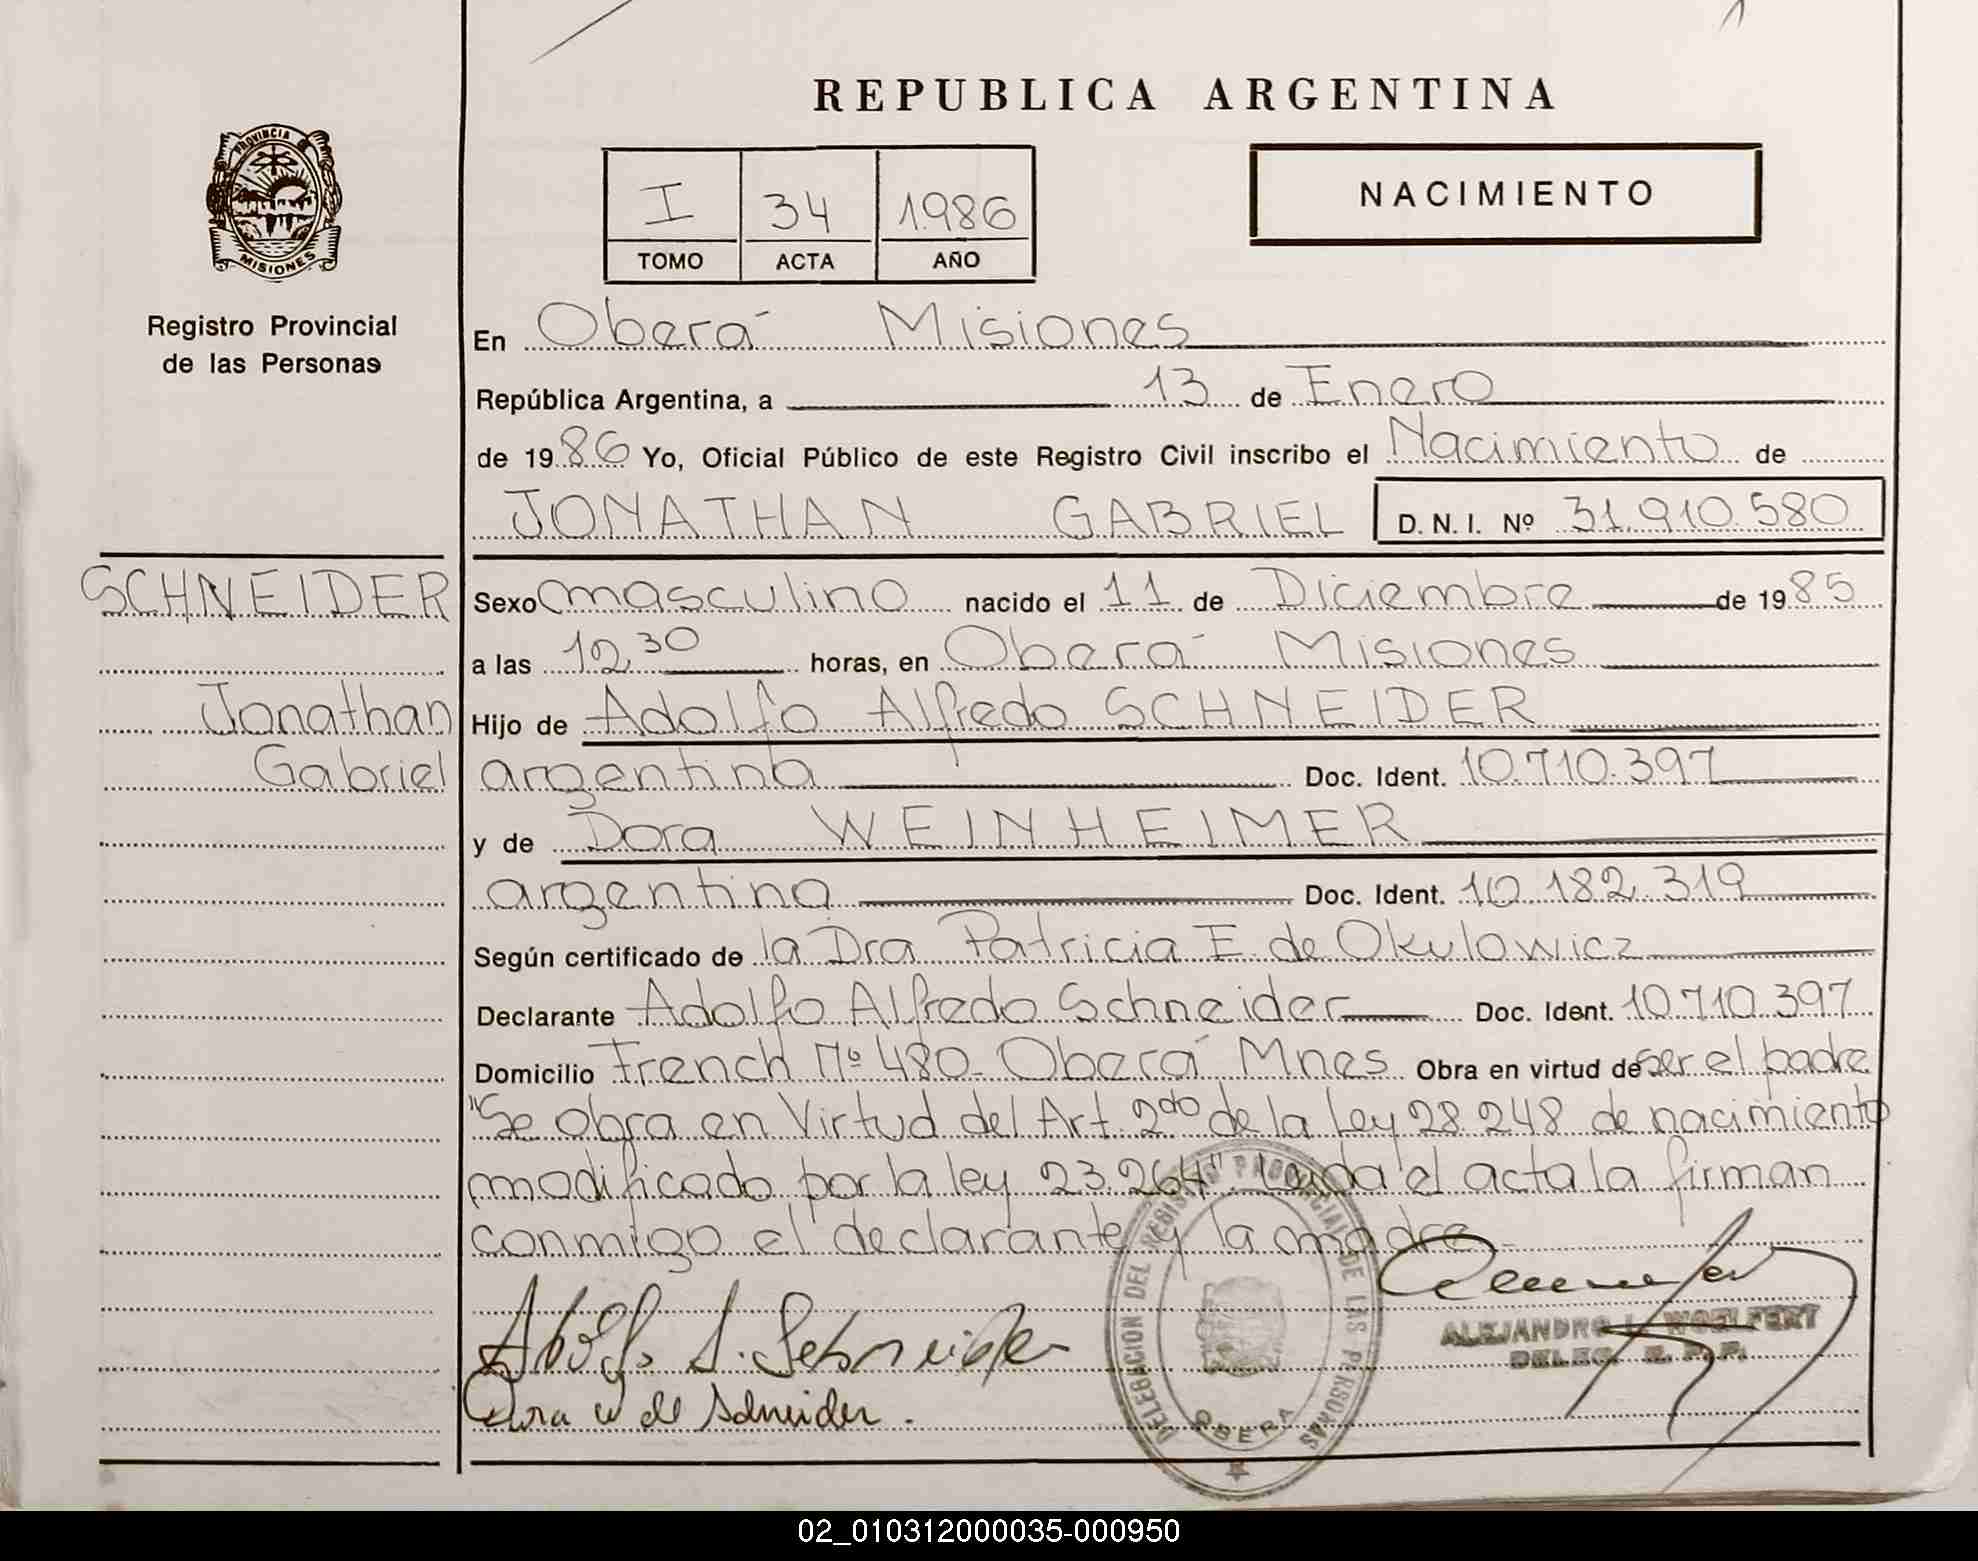 REPUBLICA ARGENTINA
PROVINCIA
MISIONES
Registro Provincial
de las Personas
I 34 1986
TOMO ACTA AÑO
NACIMIENTO
En Oberá Misiones
República Argentina, a 13 de Enero
de 1986 Yo, Oficial Público de este Registro Civil inscribo el Nacimiento de
JONATHAN GABRIEL D. N. I. Nº 31.910.580
SCHNEIDER
Jonathan
Gabriel
Sexo masculino nacido el 11 de Diciembre de 1985
a las 12,30 horas, en Oberá Misiones
Hijo de Adolfo Alfredo SCHNEIDER
argentina Doc. Ident. 10.710.397
y de Dora WEINHEIMER
argentina Doc. Ident. 10.182.319
Según certificado de la Dra Patricia E. de Okulowicz
Declarante Adolfo Alfredo Schneider Doc. Ident. 10.710.397
Domicilio French Nº 480- Oberá Mnes Obra en virtud de ser el padre
"Se obra en Virtud del Art. 2do de la Ley 28.248 de nacimiento
modificado por la ley 23.264". Leida el acta la firman
conmigo el declarante y la madre-
Adolfo A. Schneider
Dora W de Schneider.
DELEGACION DEL REGISTRO PROVINCIAL DE LAS PERSONAS
OBERA
ALEJANDRO L. WOELFERT
DELEG. R. P. P.
02_010312000035-000950